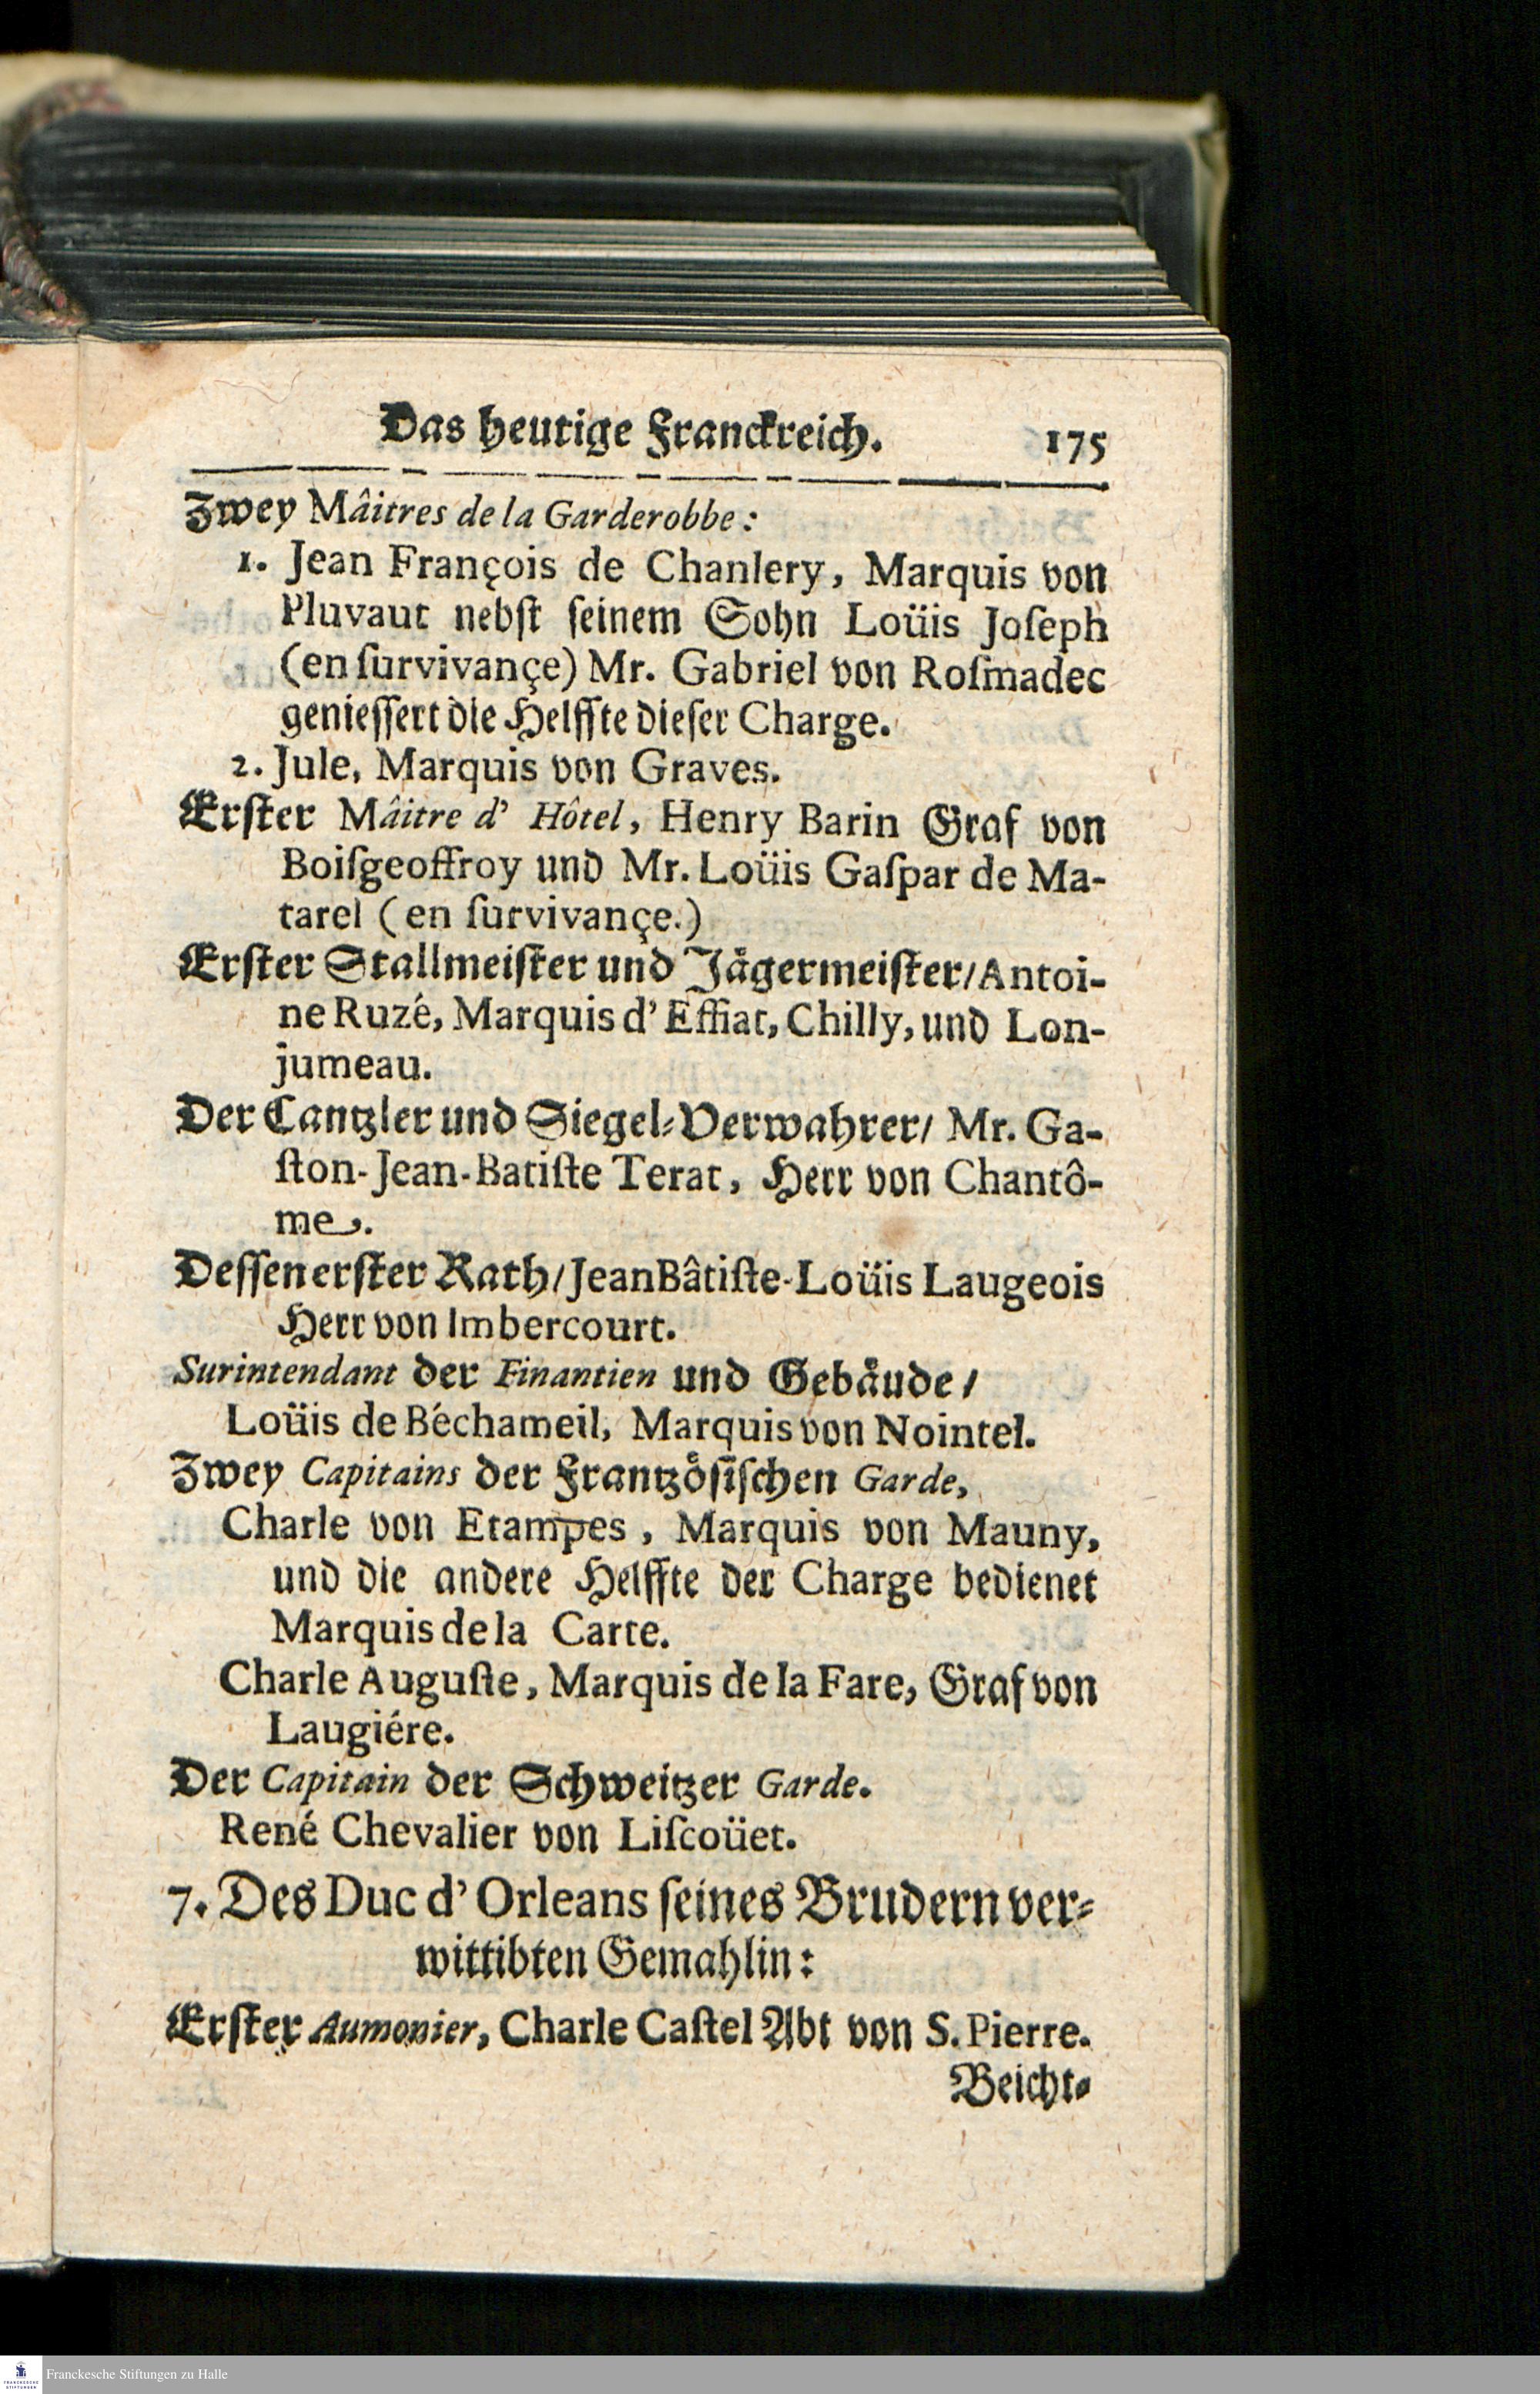 Das heutige Franckreich. 175
Zwey Mâitres de la Garderobbe:
1. Jean François de Chanlery, Marquis von
Pluvaut nebſt ſeinem Sohn Loüis Joſeph
(en ſurvivançe) Mr. Gabriel von Roſmadec
genieſſert die Helffte dieſer Charge.
2. Jule, Marquis von Graves.
Erſter Mâitre d' Hôtel, Henry Barin Graf von
Boiſgeoffroy und Mr. Loüis Gaſpar de Ma-
tarel (en ſurvivançe.)
Erſter Stallmeiſter und Jågermeiſter/ Antoi-
ne Ruzé, Marquis d' Effiat, Chilly, und Lon-
jumeau.
Der Cantzler und Siegel-Verwahrer/ Mr. Ga-
ſton-Jean-Batiſte Terat, Herr von Chantô-
me.
Deſſen erſter Rath/ Jean Bâtiſte-Loüis Laugeois
Herr von Imbercourt.
Surintendant der Finantien und Gebåude/
Loüis de Béchameil, Marquis von Nointel.
Zwey Capitains der Frantzöſiſchen Garde,
Charle von Etampes, Marquis von Mauny,
und die andere Helffte der Charge bedienet
Marquis de la Carte.
Charle Auguſte, Marquis de la Fare, Graf von
Laugiére.
Der Capitain der Schweitzer Garde.
René Chevalier von Liſcoüet.
7. Des Duc d' Orleans ſeines Brudern ver-
wittibten Gemahlin:
Erſter Aumonier, Charle Caſtel Abt von S. Pierre.
Beicht-
Franckesche Stiftungen zu Halle
FRANCKESCHE
STIFTUNGEN